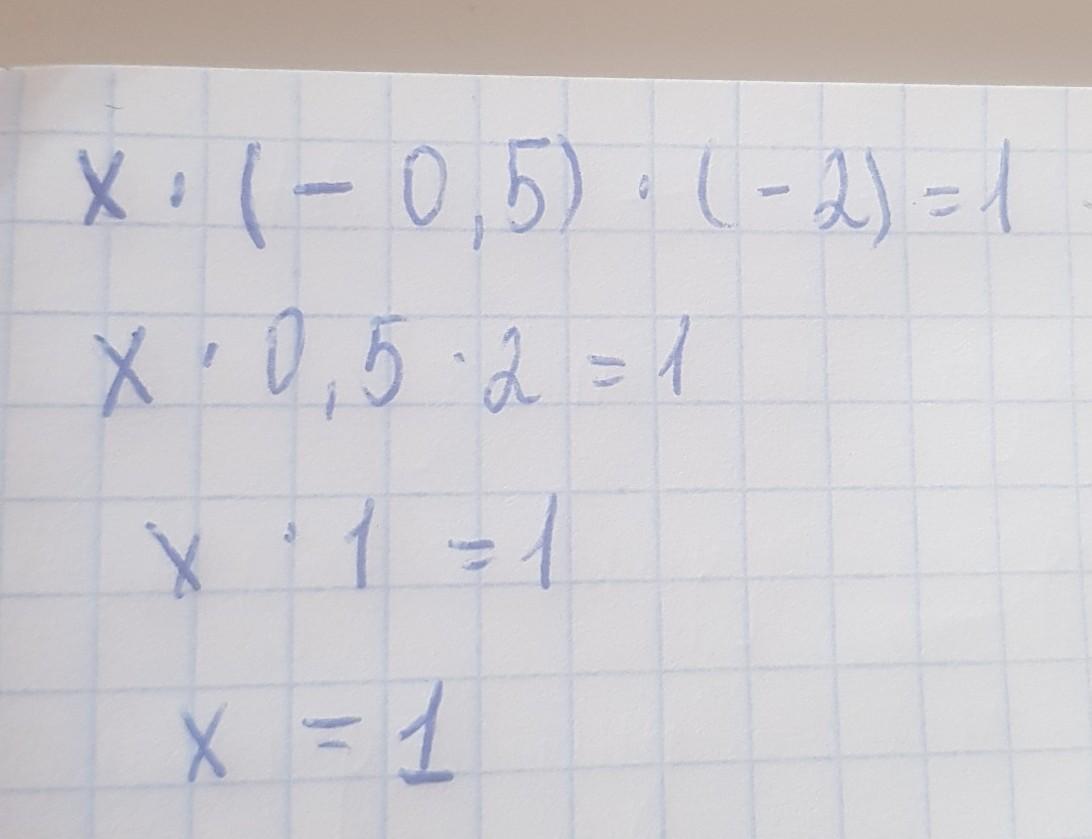 x · (- 0,5) · (- 2) = 1
x · 0,5 · 2 = 1
x · 1 = 1
x = 1